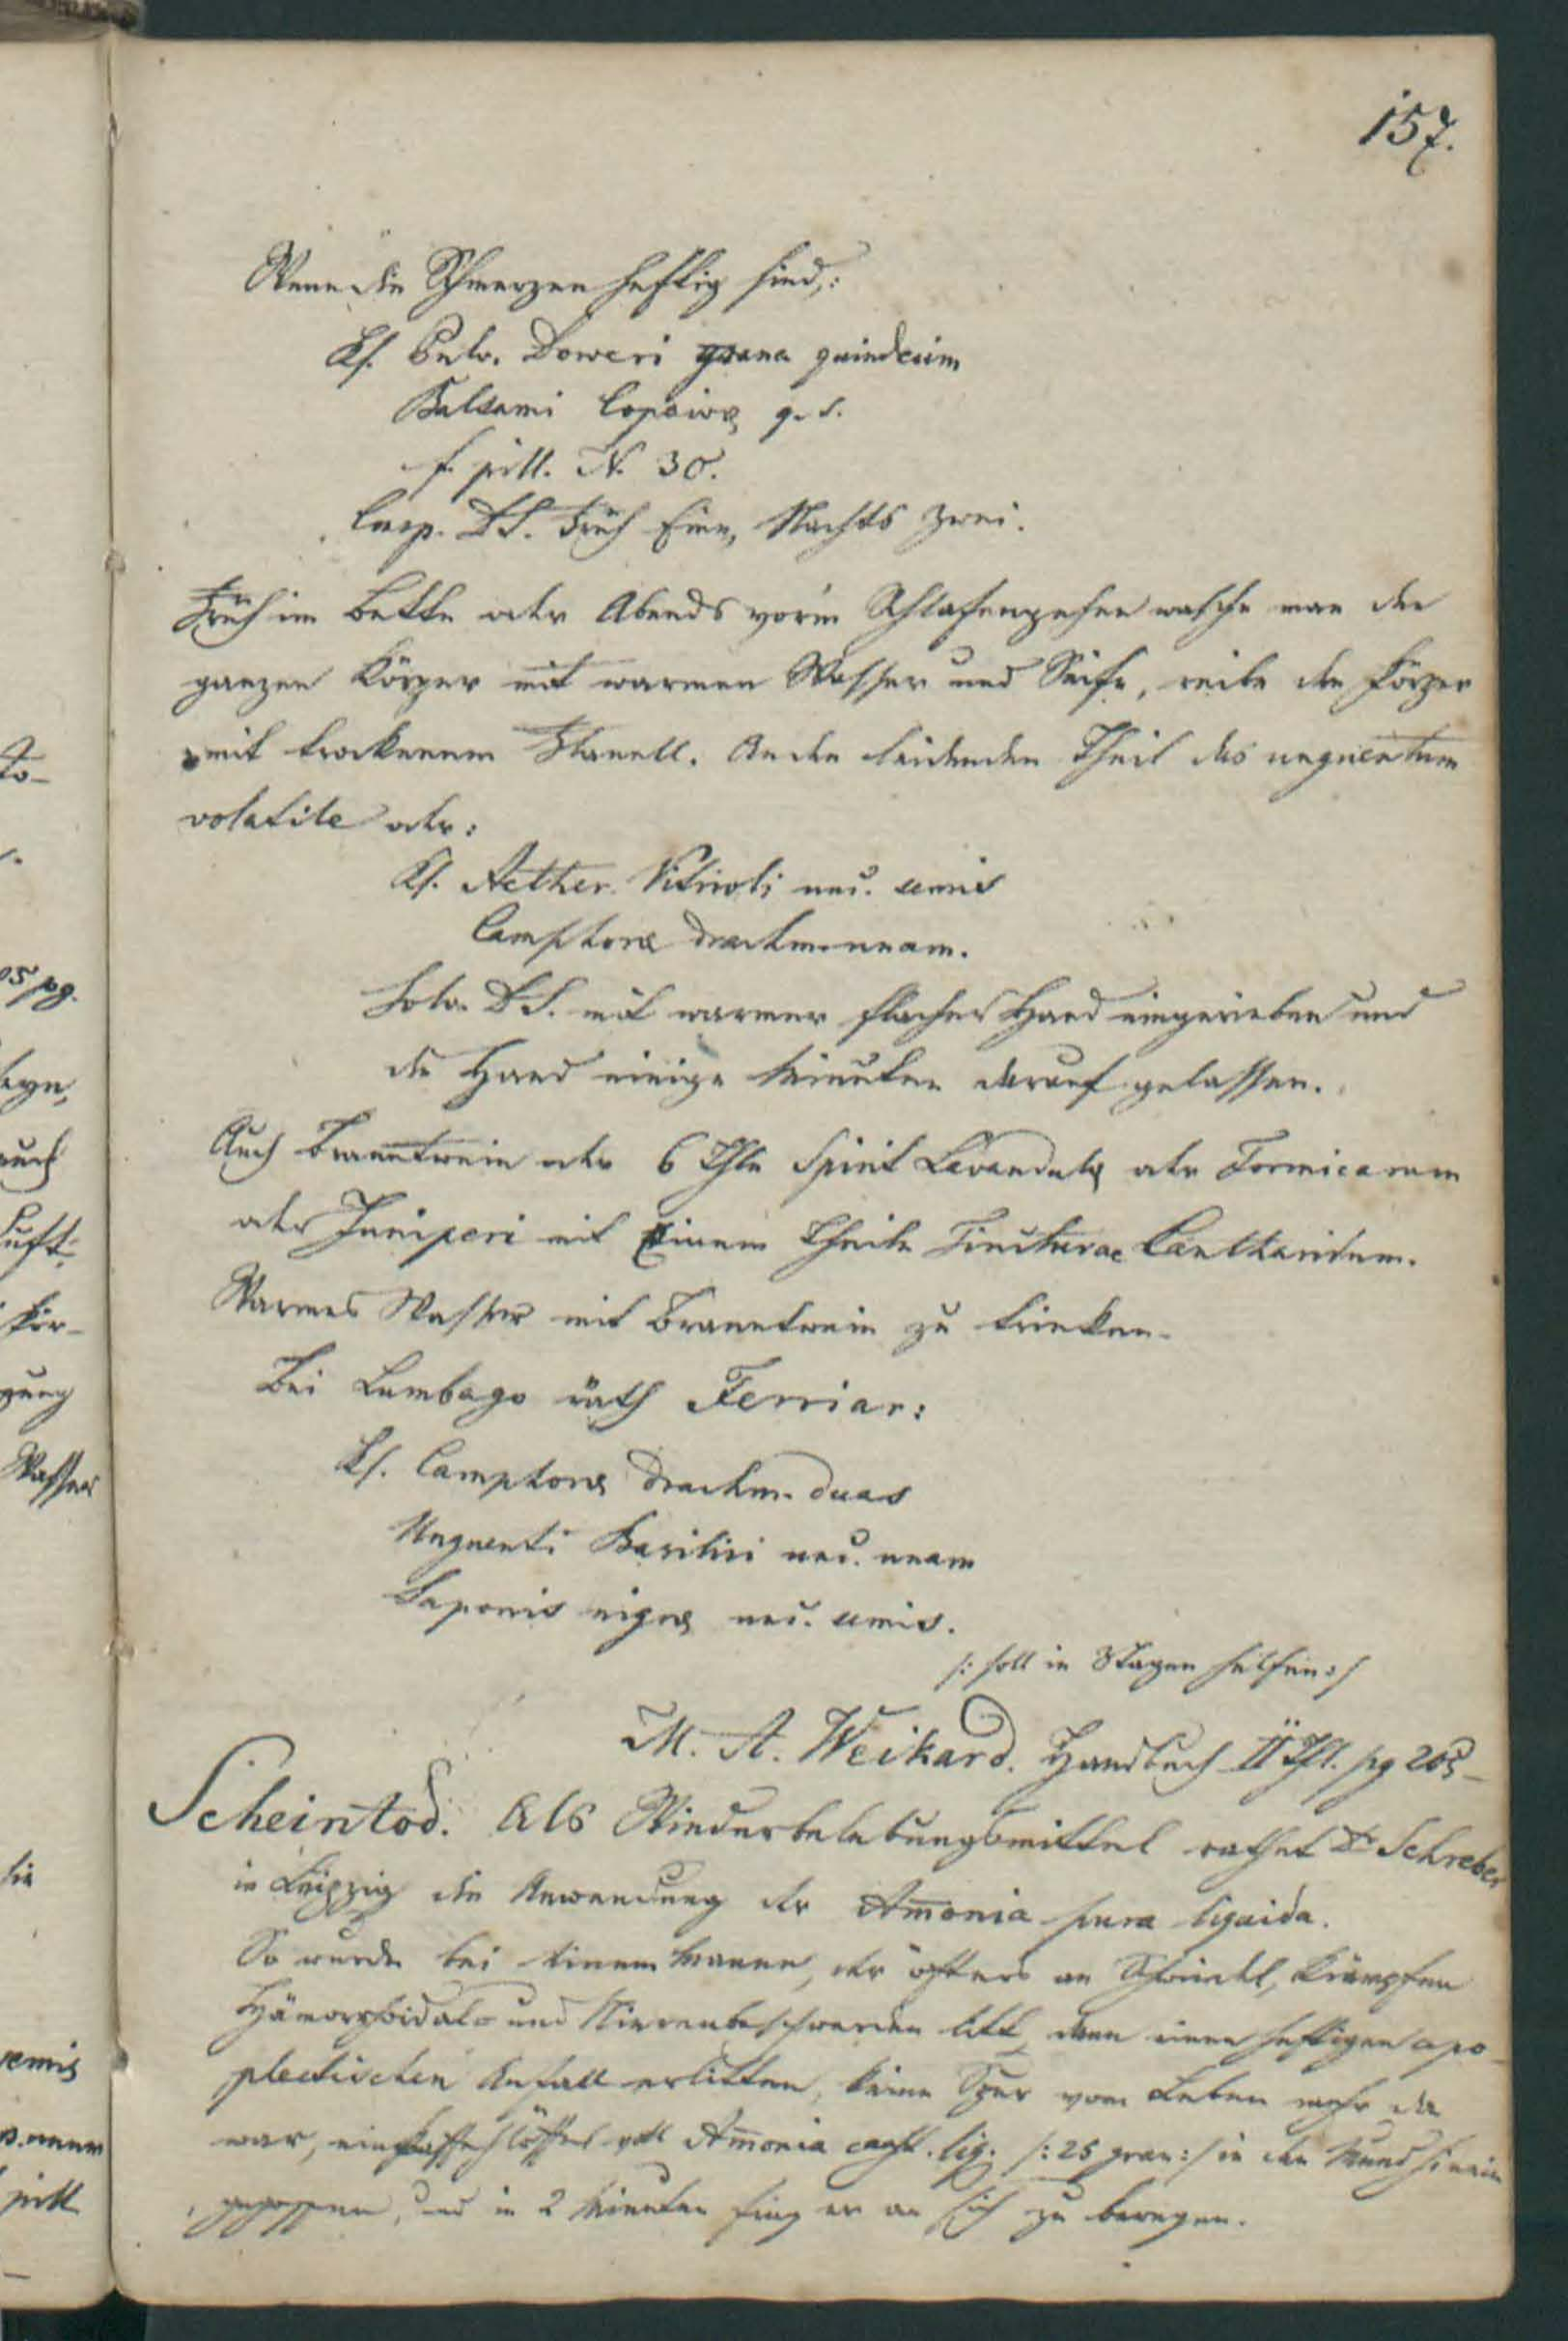 157.
Wenn die Schmerzen heftig sind,:
Rf. Pulv. Doweri grana quindecim
Balsami Copaivæ q. s.
f. pill. N. 30.
Consp. DS. Früh Eine, Nachts zwei.
Früh im Bette oder Abends vorm Schlafengehen wasche man den
ganzen Körper mit warmen Wasser und Seife, reibe den Körper
mit trockenem Flanell. An den leidenden Theil das unguentum
volatile oder:
Rf. Aether. Vitrioli unc. semis
Camphoræ drachm. unam.
Solv. DS. mit warmer flacher Hand eingerieben und
die Hand einige Minuten darauf gelassen.
Auch Branntwein oder 6 Thle Spirit Lavandulæ oder Formicarum
oder Juniperi mit Einem Theile Tincturae Cantharidum.
Warmes Wasser mit Branntwein zu trinken.
Bei Lumbago räth Ferriar:
Rf. Camphoræ drachm. duas
Unguenti Basilici unc. unam
Saponis nigræ unc. semis.
/: soll in 3 Tagen helfen :/
M. A. Weikard. Handbuch II Thl. pg 205_
Scheintod. Als Wiederbelebungsmittel rathet Dr Schreber
in Leipzig die Anwendung der Am̄onia pura liquida.
So wurde bei einem Manne, der öfters an Schwindel, Krämpfen
Hämorrhoidal- und Nierenbeschwerden litt, dann einen heftigen apo-
plectischen Anfall erlitten, keine Spur vom Leben mehr da
war, ein Kaffehlöffel voll Am̄onia caust. liq. /: 25 gran :/ in den Mund hinein
gegossen, und in 2 Minuten fing er an sich zu bewegen.